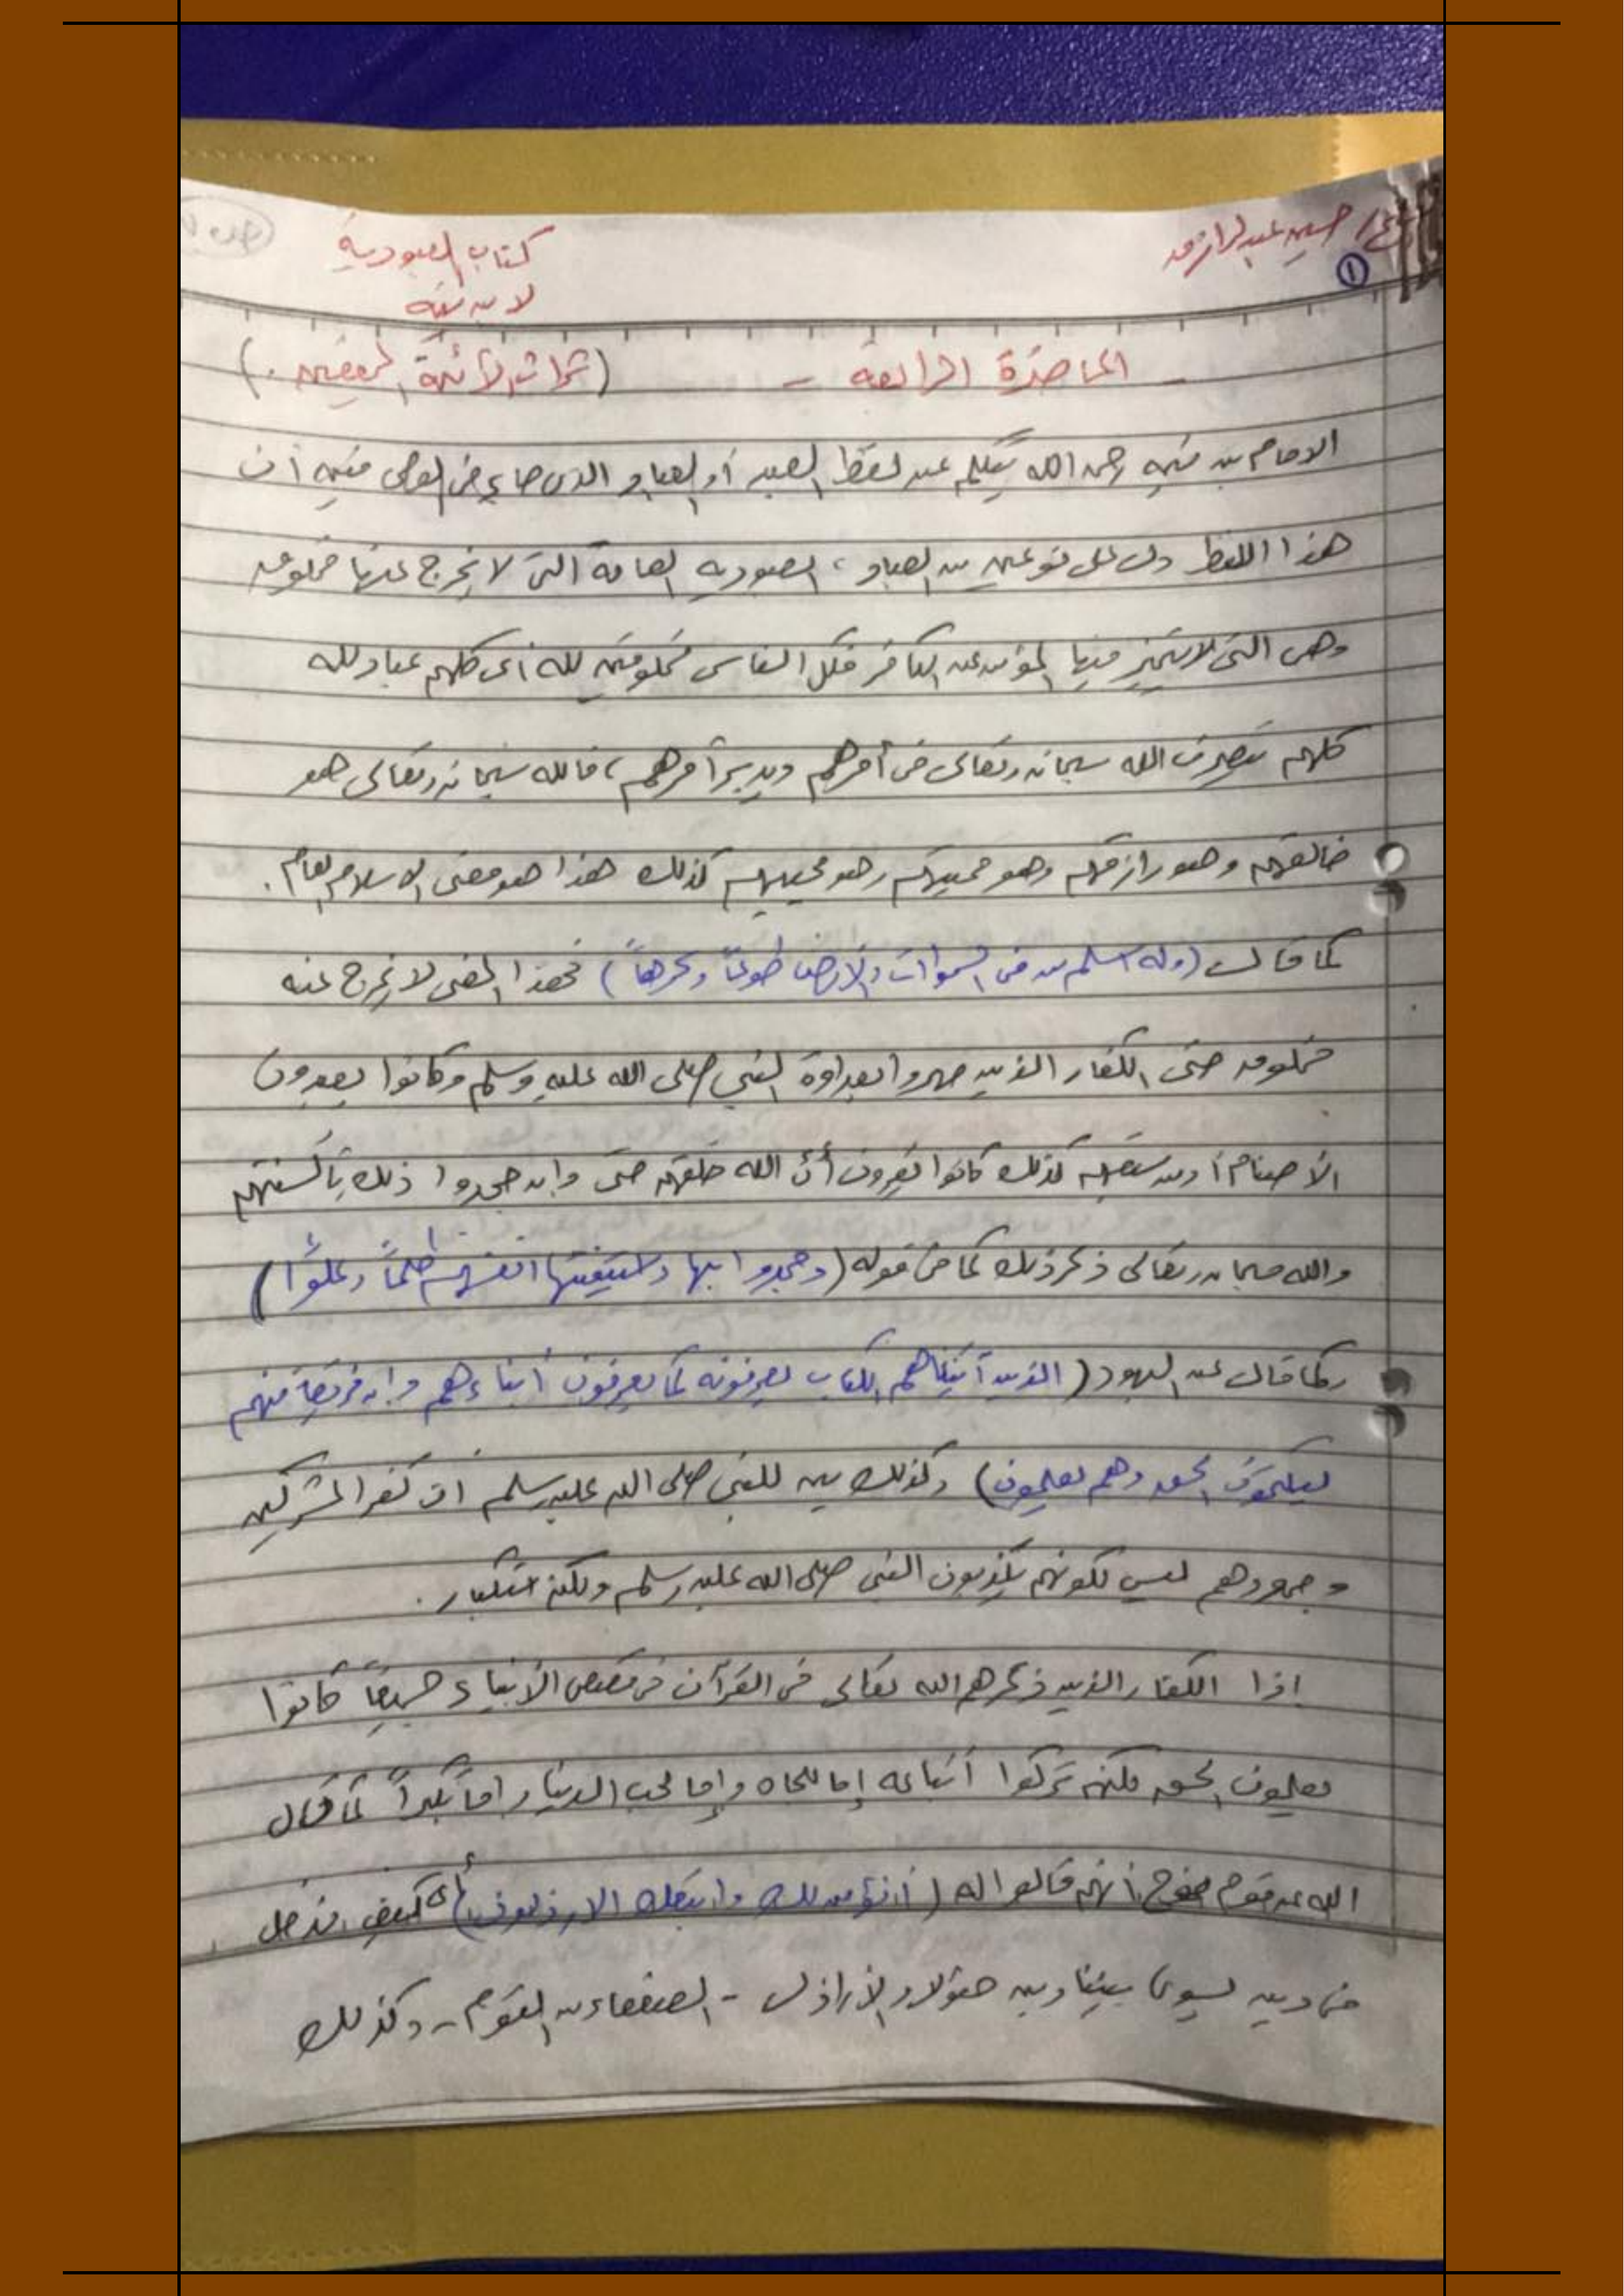 حسين عبد الرازق
كتاب العبودية
لابن تيمية
١
- المحاضرة الرابعة - (تراث الأئمة المحققين .)
الامام بن تيميه رحمه الله يتكلم عن لفظ العبد أو العباد الذى جاء فى الوحى فبين أن
هذا اللفظ دل على نوعين من العباد ، العبوديه العامة التى لا يخرج عنها مخلوق
وهى التى لا يتميز فيها المؤمن عن الكافر فكل الناس مخلوقين لله أى كلهم عباد لله
كلهم يتصرف الله سبحانه وتعالى فى أمرهم ويدبر أمرهم ، فالله سبحانه وتعالى هو
خالقهم وهو رازقهم وهو مميتهم وهو محييهم كذلك هذا هو معنى الاسلام العام .
كما قال (وله اسلم من فى السموات والأرض طوعاً وكرهاً) فهذا المعنى لا يخرج عنه
مخلوق حتى الكفار الذين جهروا بعداوة النبي صلى الله عليه وسلم وكانوا يعبدون
الأصنام أ ومن سبقهم كذلك كانوا يقرون أنَّ الله خلقهم حتى وإن جحدوا ذلك بألسنتهم
والله سبحانه وتعالى ذكر ذلك كما فى قوله (وجحدوا بها واستيقنتها انفسهم ظلماً وعلوًا)
وكما قال عن اليهود (الذين آتيناهم الكتاب يعرفونه كما يعرفون أبناءهم وإن فريقاً منهم
ليكتمون الحق وهم يعلمون) وكذلك بين للنبي صلى الله عليه وسلم أن كفر المشركين
وجحودهم ليس لكونهم يكذبون النبى صلى الله عليه وسلم ولكنه استكبار .
إذا الكفار الذين ذكرهم الله تعالى فى القرآن فى قصص الأنبياء جميعاً كانوا
يعلمون الحق ولكنهم تركوا أتباعه إما للجاه وإما لحب الدنيا وإما تكبراً كما قال
الله عن قوم نوح أنهم قالوا له (أنؤمن لك واتبعك الارذلون) أى كيف ندخل
فى دين يسوى بيننا وبين هؤلاء الأراذل - الضعفاء من القوم - وكذلك